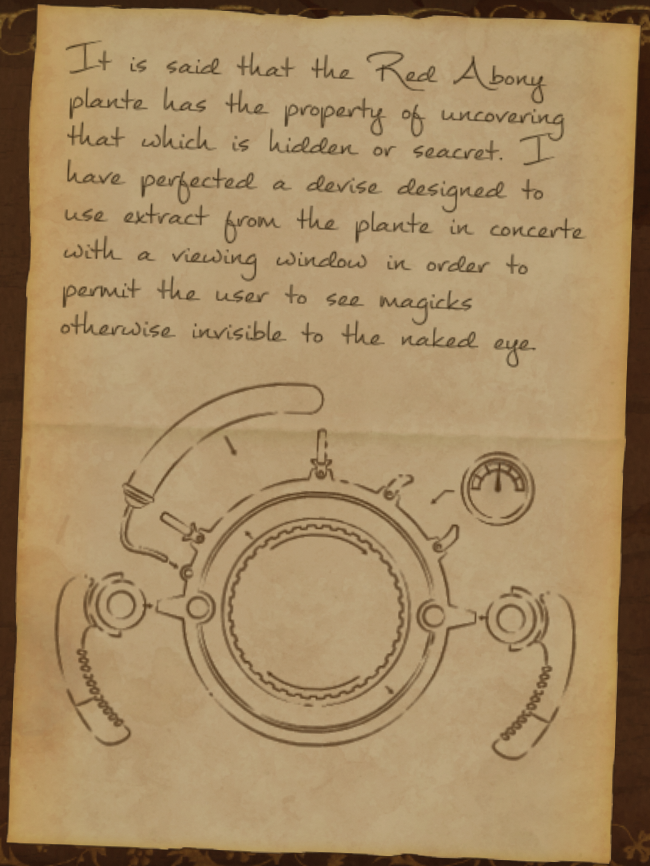 It is said that the Red Abony
plante has the property of uncovering
that which is hidden or seacret. I
have perfected a devise designed to
use extract from the plante in concerte
with a viewing window in order to
permit the user to see magicks
otherwise invisible to the naked eye.